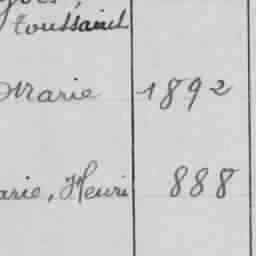 Toussaint
Marie 1892
arie, Henri 888